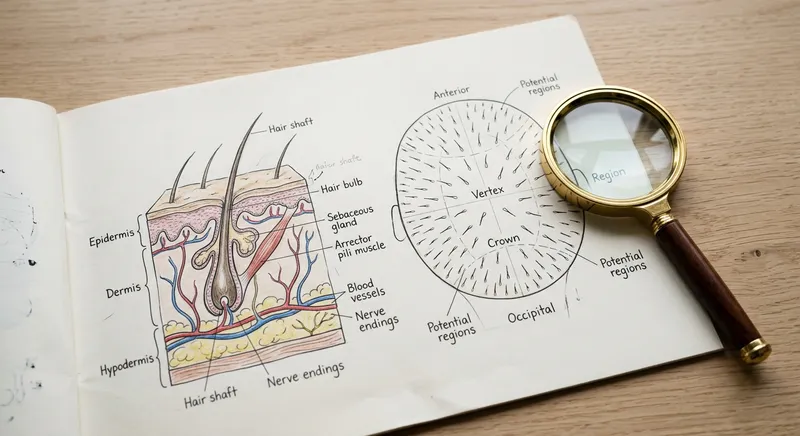 Hair shaft
Hair bulb
Sebaceous
gland
Arrector
pili muscle
Blood
vessels
Nerve
endings
Epidermis
Dermis
Hypodermis
Hair shaft
Nerve endings
Anterior
Potential
regions
Region
Vertex
Crown
Potential
regions
Potential
regions
Occipital